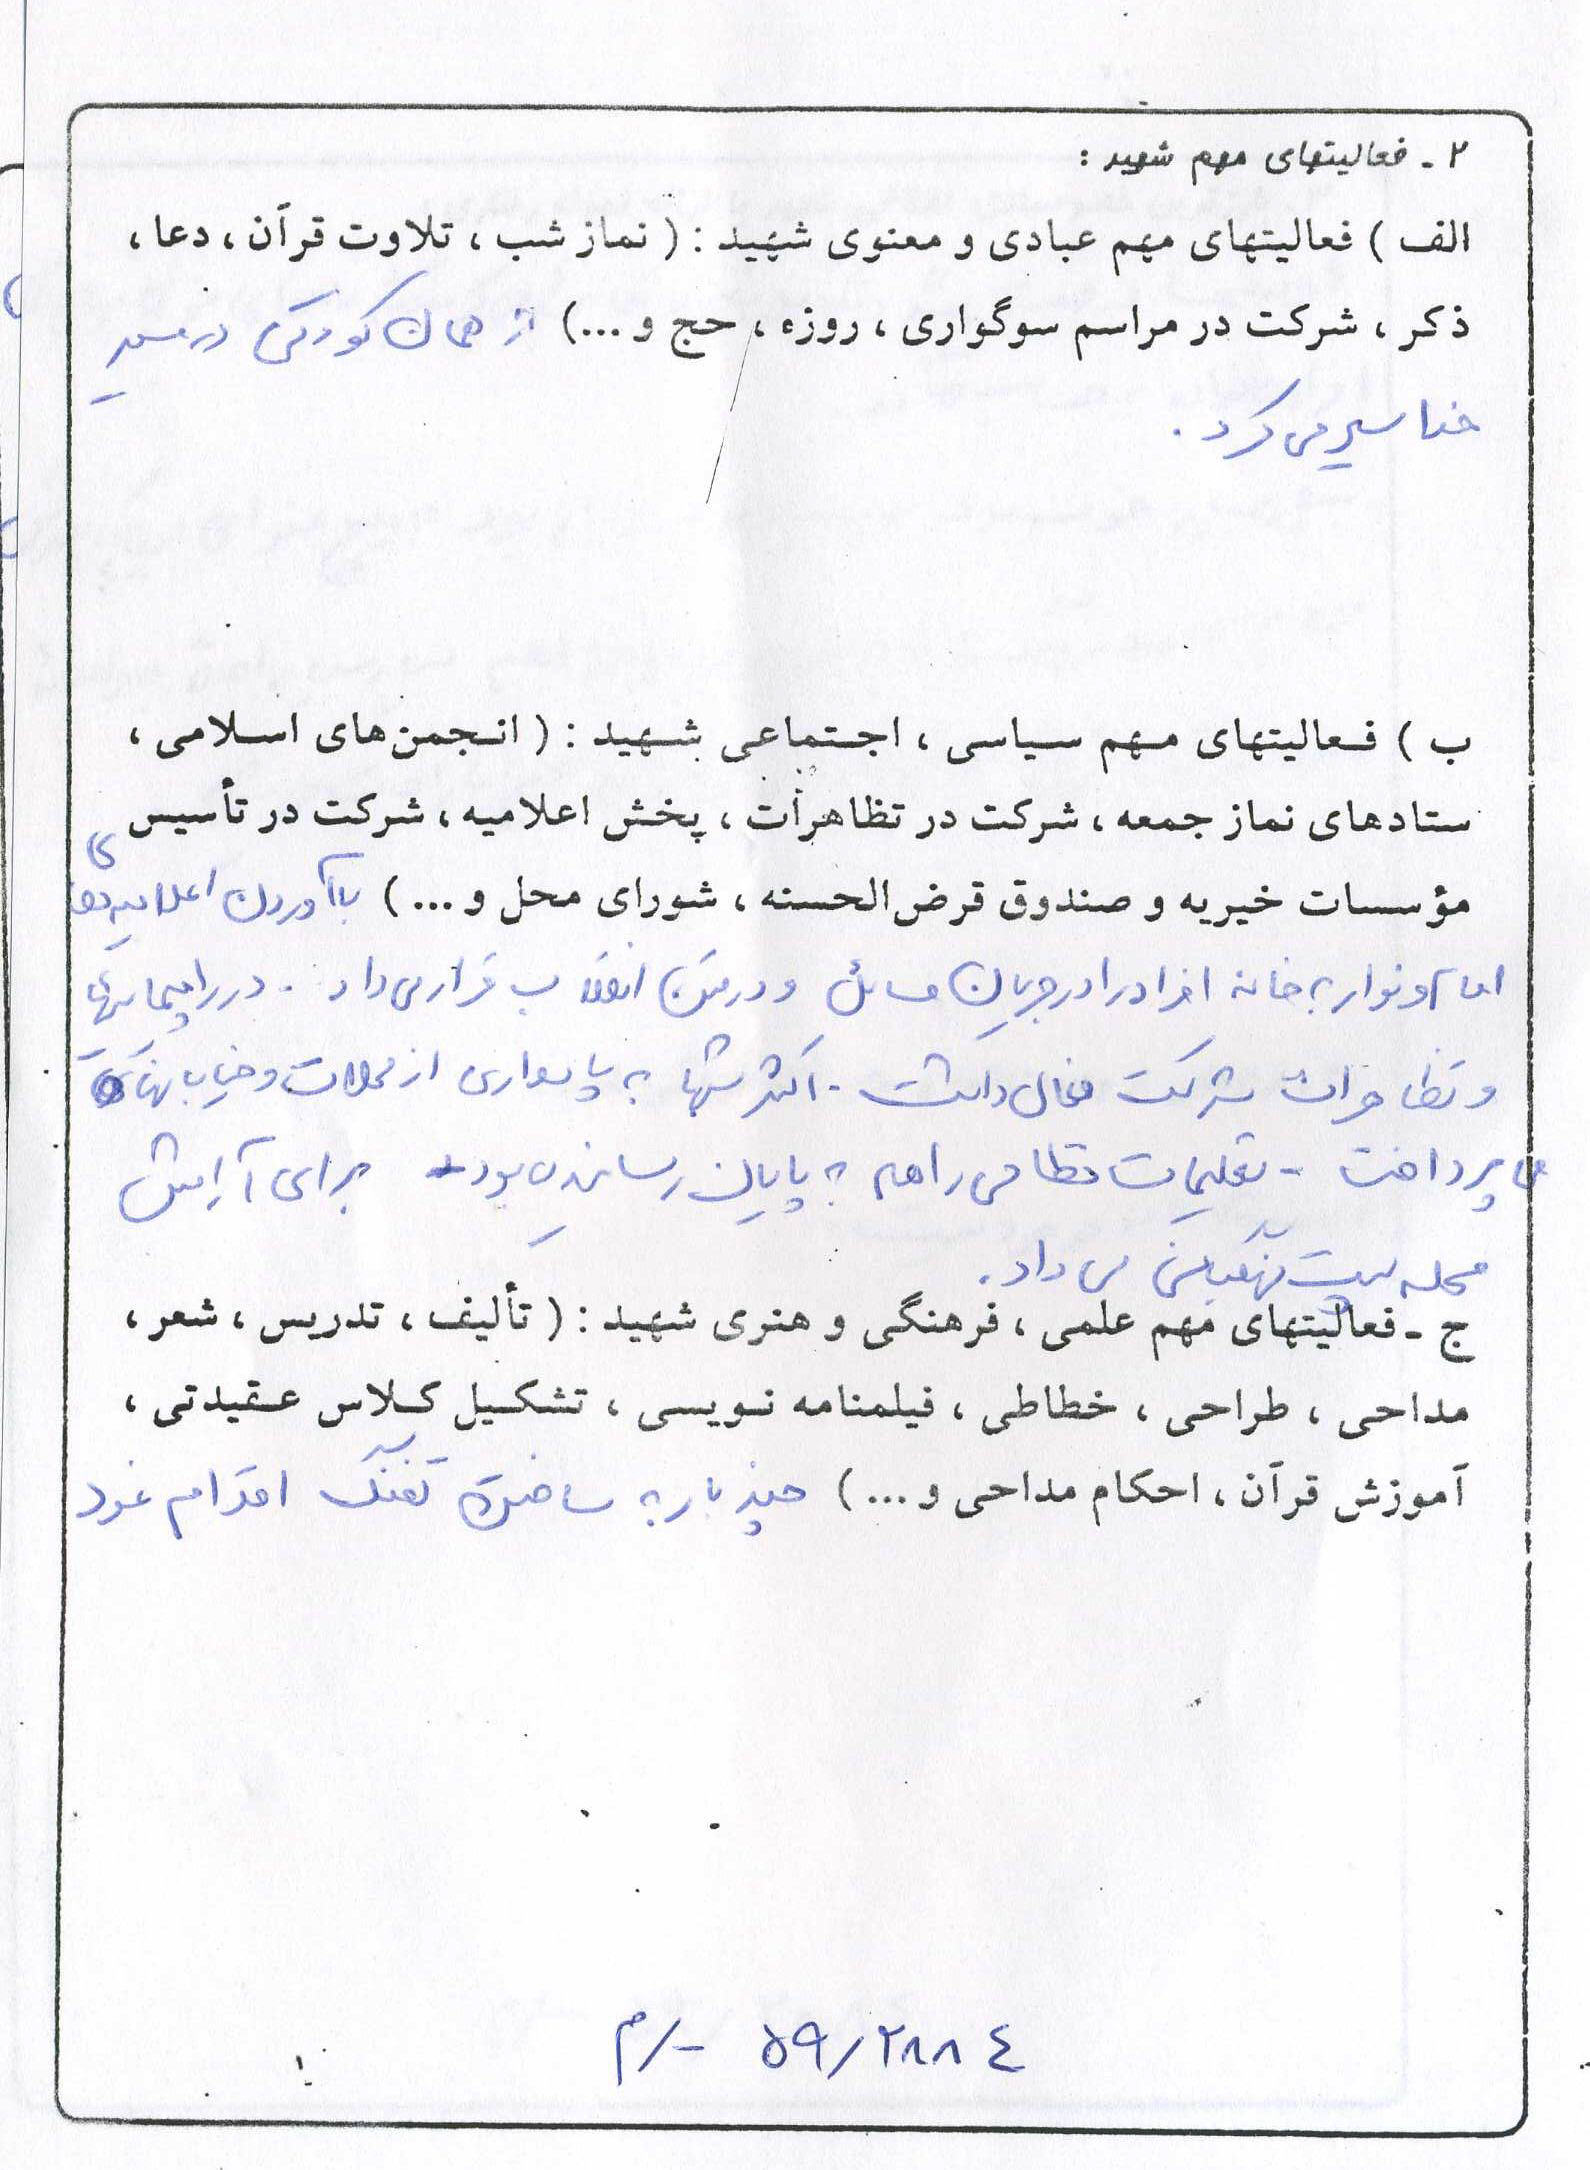 ۲ - فعالیتهای مهم شهید :
الف ) فعالیتهای مهم عبادی و معنوی شهید : ( نماز شب ، تلاوت قرآن ، دعا ،
ذکر ، شرکت در مراسم سوگواری ، روزه ، حج و ...) از همان کودکی در مسیر
خدا سیر می کرد .
ب ) فعالیتهای مهم سیاسی ، اجتماعی شهید : ( انجمن های اسلامی ،
ستادهای نماز جمعه ، شرکت در تظاهرات ، پخش اعلامیه ، شرکت در تأسیس
مؤسسات خیریه و صندوق قرض الحسنه ، شورای محل و ... ) با آوردن اعلامیه های
امام و نوار به خانه افراد را در جریان مسائل و در متن انقلاب قرار می داد . در راهپیمائیها
و تظاهرات شرکت فعال داشت . اکثر شبها به پاسداری از محلات و خیابانها
می پرداخت - تعلیمات نظامی را هم به پایان رسانده بود برای آرامش
محله پست نگهبانی می داد .
ج - فعالیتهای مهم علمی ، فرهنگی و هنری شهید : ( تألیف ، تدریس ، شعر ،
مداحی ، طراحی ، خطاطی ، فیلمنامه نویسی ، تشکیل کلاس عقیدتی ،
آموزش قرآن ، احکام مداحی و ... ) چند بار به ساختن تفنگ اقدام نمود
۵۹/۲۸۸۴ -/م